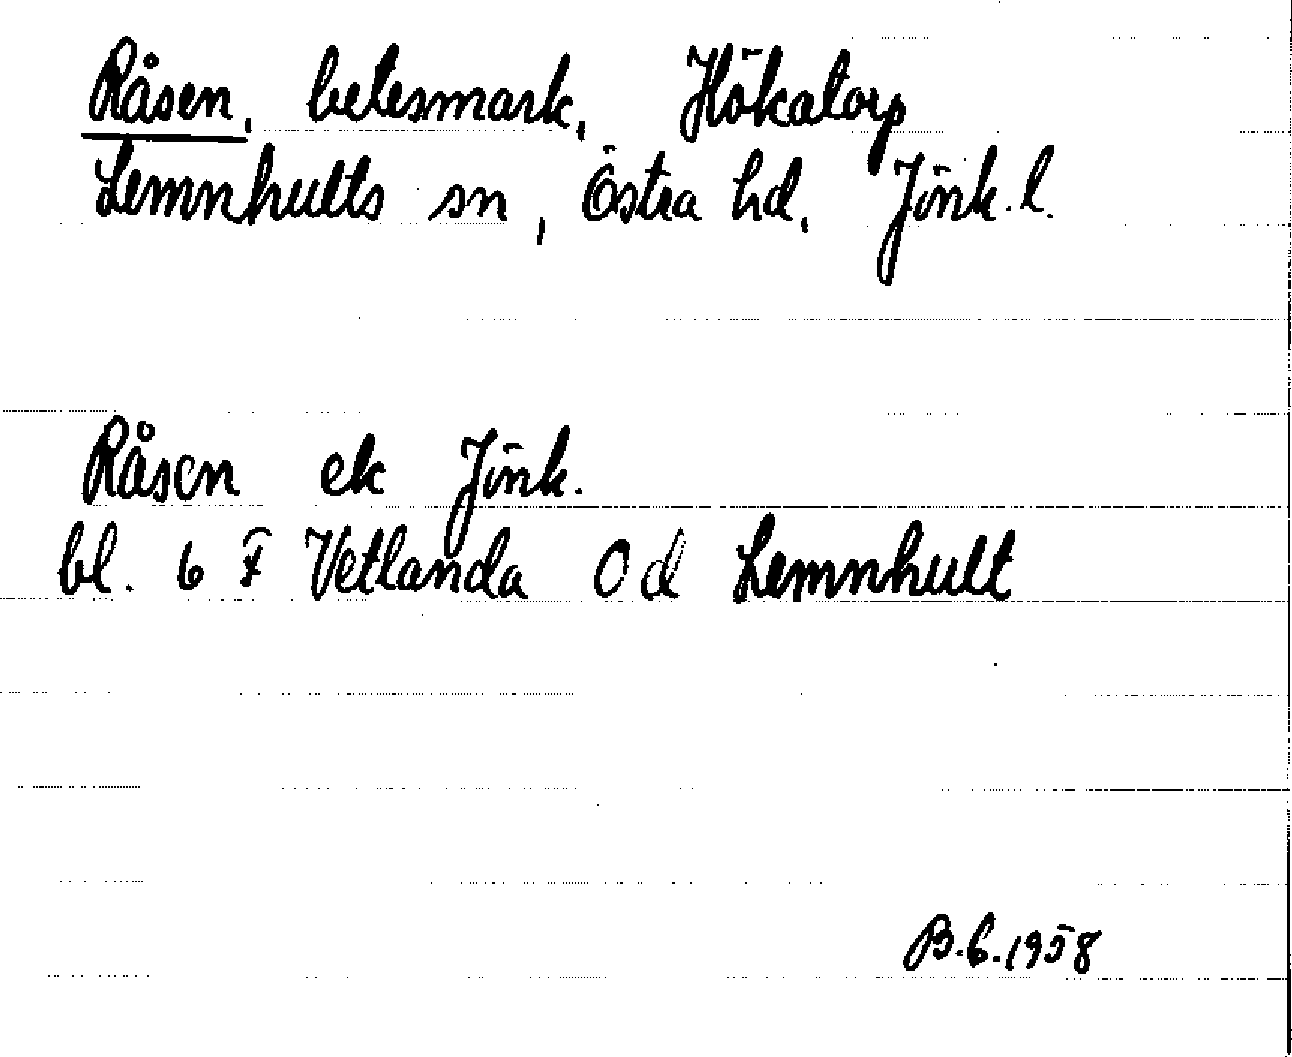 Råsen, betesmark, Hökatorp
Lemnhults sn, Östra hd, Jönk. l.
Råsen ek Jönk.
bl. 6 F Vetlanda Od Lemnhult
B.G.1958